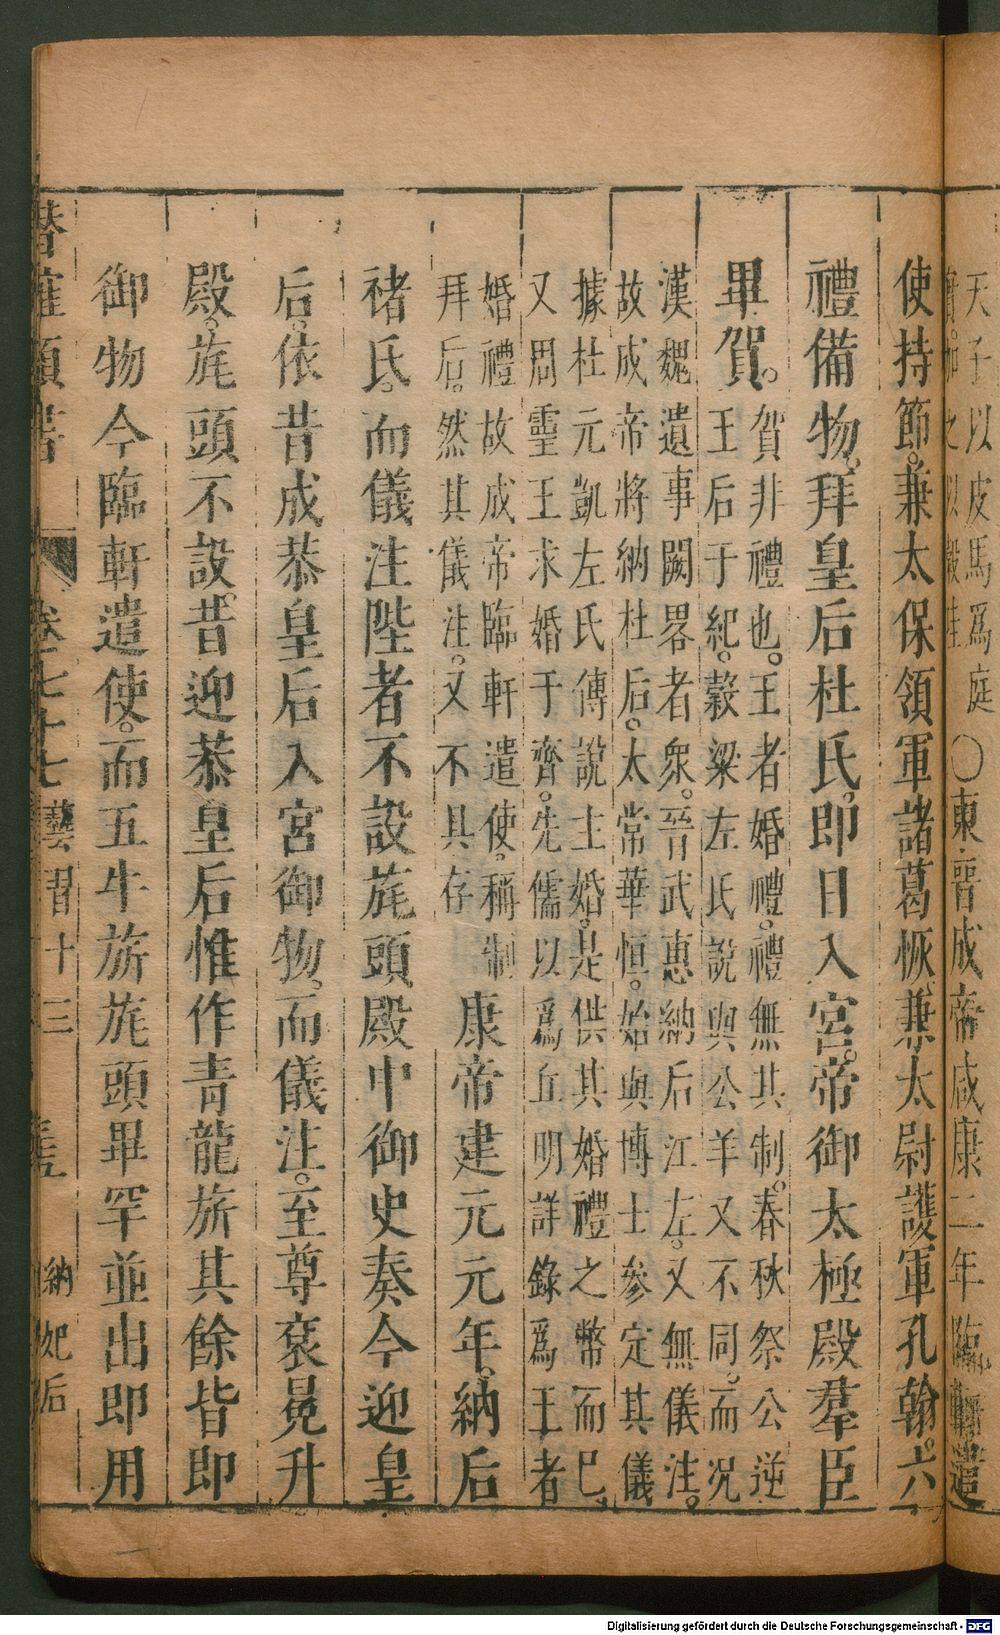 天子以皮馬爲庭○東晉成帝咸康二年臨軒遣
使持節。兼太保領軍諸葛恢。兼太尉護軍孔翰。六
禮備物。拜皇后杜氏。即日入宮。帝御太極殿羣臣
畢賀。
賀非禮也。王者婚禮。禮無其制。春秋祭公逆
王后于紀。穀梁左氏說與公羊又不同。而况
漢魏遺事闕畧者衆。晉武惠納后江左。又無儀注。
故成帝將納杜后。太常華恒。始與博士參定其儀
據杜元凱左氏傳說主婚。是供其婚禮之幣而已。
又周靈王求婚于齊。先儒以爲丘明詳錄爲王者
婚禮故成帝臨軒遣使。稱制
拜后。然其儀注。又不具存
康帝建元元年。納后
褚氏。而儀注陛者不設旄頭殿中御史奏今迎皇
后。依昔成恭皇后入宮御物。而儀注。至尊袞冕升
殿。旄頭不設。昔迎恭皇后惟作青龍旂其餘皆即
御物今臨軒遣使。而五牛旂旄頭畢罕並出即用
潛確類書
卷七十七
藝習十三
納妃后
Digitalisierung gefördert durch die Deutsche Forschungsgemeinschaft - DFG